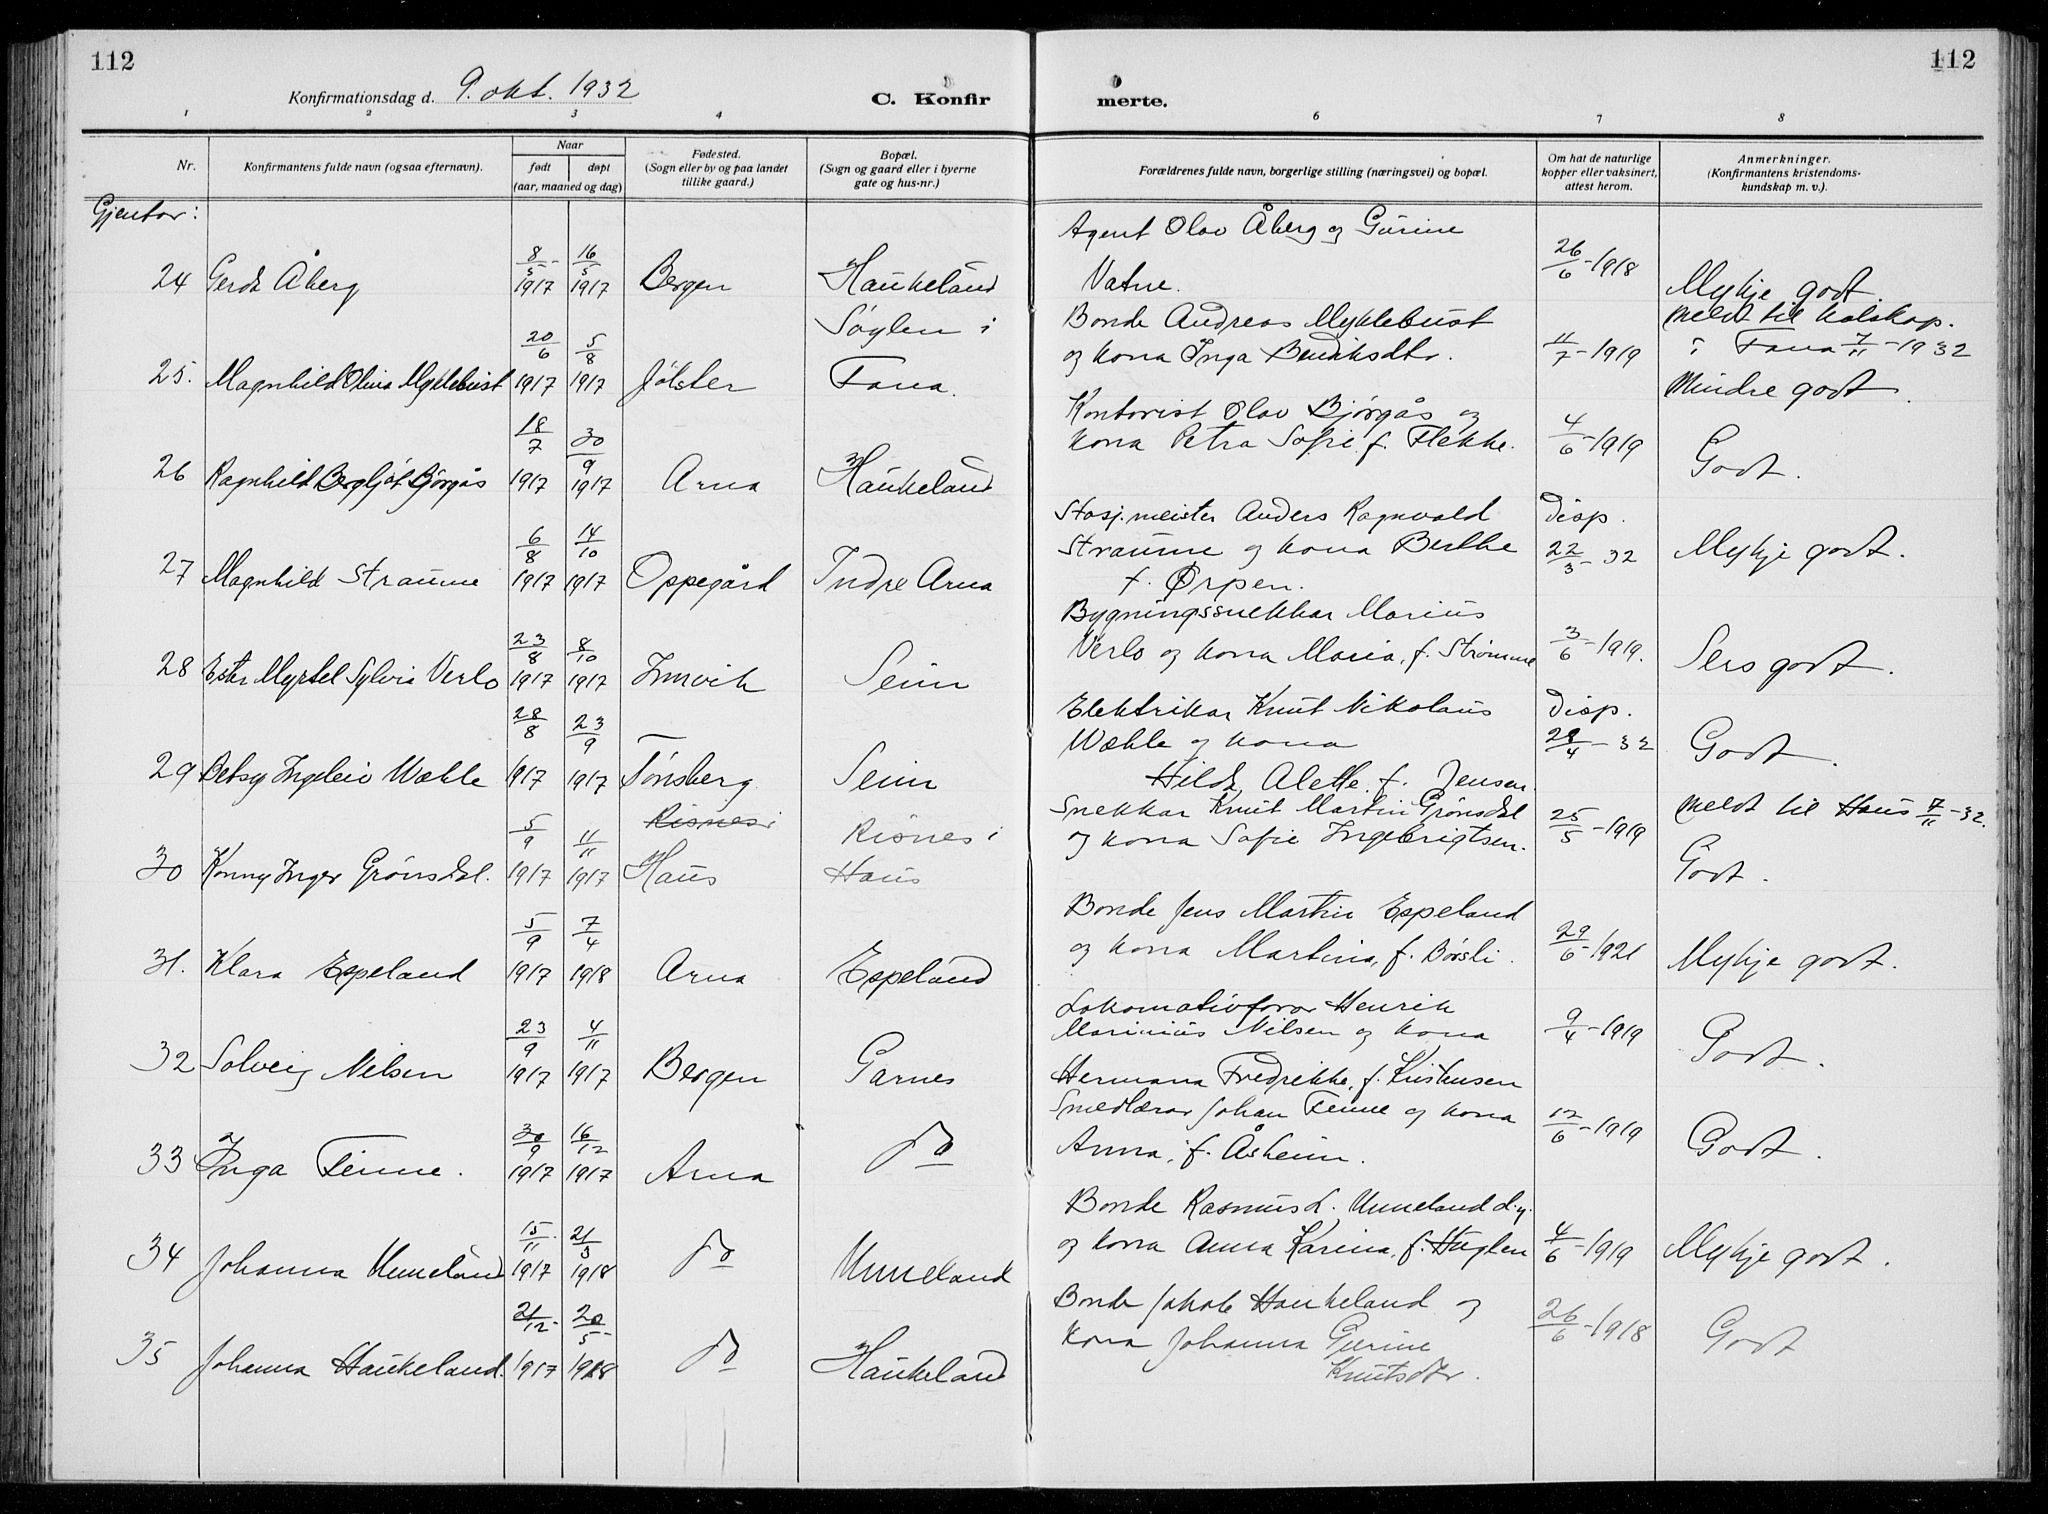 112
112
Konfirmationsdag d. 9. okt. 1932
C. Konfir merte.
1 2 3 4 6 7 8
Nr.
Konfirmantens fulde navn (ogsaa efternavn).
Naar
født døpt
(aar, maaned og dag)
Fødested.
(Sogn eller by og paa landet
tillike gaard.)
Bopæl.
(Sogn og gaard eller i byerne
gate og hus-nr.)
Forældrenes fulde navn, borgerlige stilling (næringsvei) og bopæl.
Om hat de naturlige
kopper eller vaksinert,
attest herom.
Anmerkninger.
(Konfirmantens kristendoms-
kundskap m. v.).
Gjentor:
24 Gerda Åberg 8/5 - 1917 16/5 1917 Bergen Haukeland
Agent Olav Åberg og Gurine
Vatne.
26/6 - 1918
Mykje godt.
25. Magnhild Olina Myklebust 20/6 1917 5/8 1917 Jølster
Søylen i
Fana.
Bonde Andreas Myklebust
og kona Inga Bendiksdtr.
11/7 - 1919
Meldt til kolskap.
i Fana 7/11 - 1932
Mindre godt.
26 Ragnhild Bergljot Bjørgås 18/7 1917 30/9 1917 Arna Haukeland
Kontorist Olav Bjørgås og
kona Petra Sofie f. Flekke.
4/6 - 1919
Godt.
27 Magnhild Straume 6/8 1917 14/10 1917 Oppegård Indre Arna
Stasj.meister Anders Ragnvald
Straume og kona Berthe
f. Ørpen.
Disp.
22/3 - 32
Mykje godt.
28 Ester Myrtel Sylvia Verlo 23/8 1917 8/10 1917 Innvik Seim
Bygningssnekkar Marius
Verlo og kona Maria, f. Strømme
3/6 - 1919.
Sers godt.
29 Betsy Ingeleiv Wæhle 28/8 1917 23/9 1917 Tønsberg Seim
Elektrikar Knut Nikolaus
Wæhle og kona
Hilda Alette f. Jensen.
Disp.
28/4 - 32
Godt.
30 Konny Inger Grønsdal. 5/9 1917 11/11 1917
Risnes i
Haus
Risnes i
Haus
Snekkar Knut Martin Grønsdal
og kona Sofie Ingebrigtsen.
25/5 - 1919
Meldt til Haus 7/11 - 32.
Godt.
31. Klara Espeland 5/9 1917 7/4 1918 Arna Espeland
Bonde Jens Martin Espeland
og kona Martina, f. Børsli.
29/6 - 1921
Mykje godt.
32 Solveig Nilsen 23/9 1917 4/11 1917 Bergen Garnes
Lokomativførar Henrik
Marinius Nilsen og kona
Hermana Fredrikke, f. Kristensen
9/4 - 1919
Godt.
33 Inga Tenne. 30/9 1917 16/12 1917 Arna do
Smedlærar Johan Tenne og kona
Anna, f. Åsheim.
12/6 - 1919
Godt.
34 Johanna Unneland 15/11 1917 21/3 1918 do Unneland
Bonde Rasmus L. Unneland d.y.
og kona Anna Karina, f. Huglen
4/6 - 1919
Mykje godt.
35 Johanna Haukeland. 21/12 - 1917 20/5 - 1918 do Haukeland
Bonde Jakob Haukeland og
kona Johanna Gurine
Knutsdtr.
26/6 - 1918
Godt